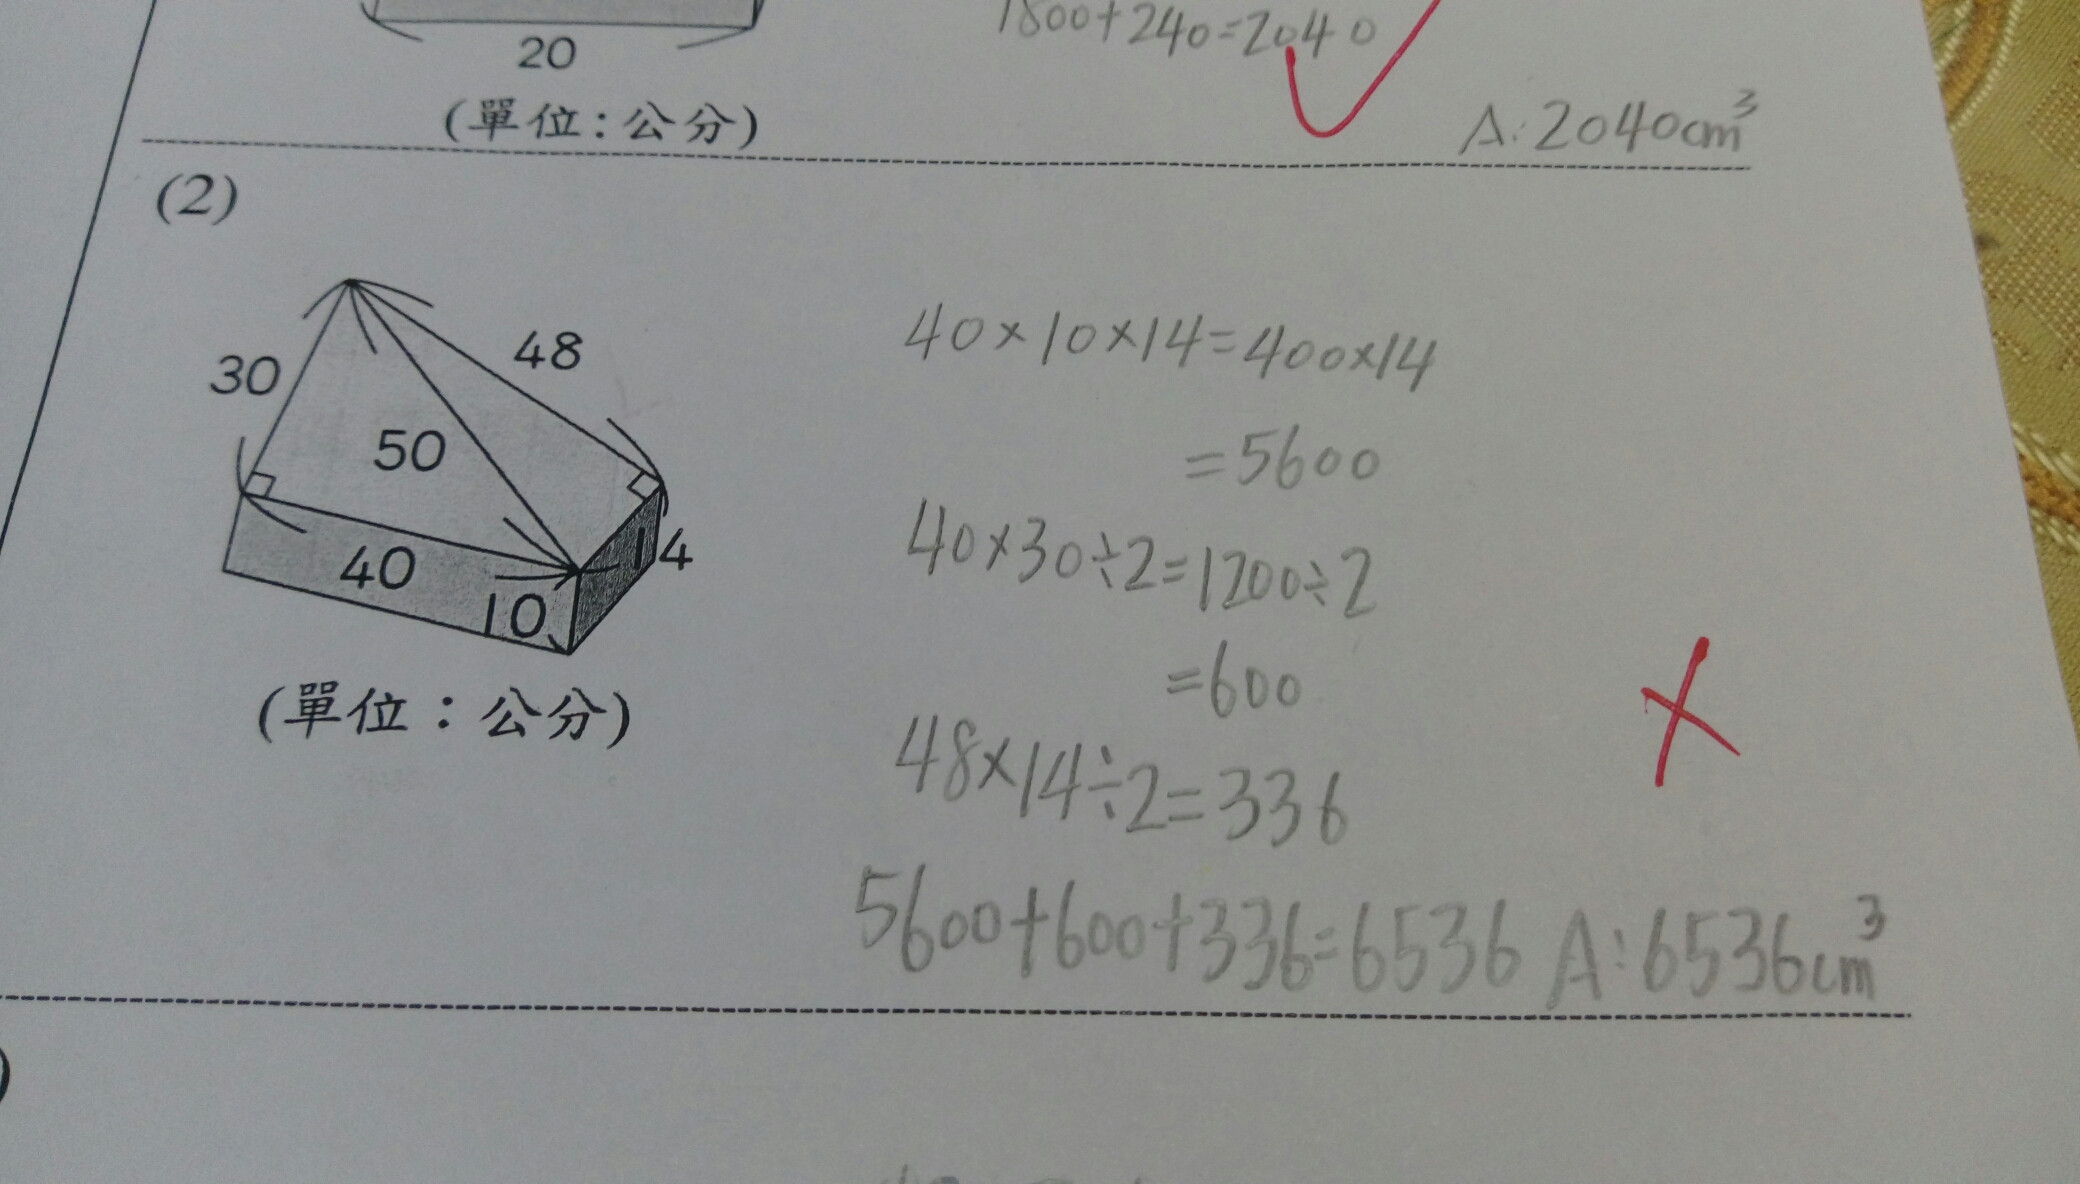 20
(單位:公分)
1800+240=2040
A:2040cm³
(2)
30
48
50
40
10
14
(單位:公分)
40×10×14=400×14
=5600
40×30÷2=1200÷2
=600
48×14÷2=336
5600+600+336=6536 A:6536cm³